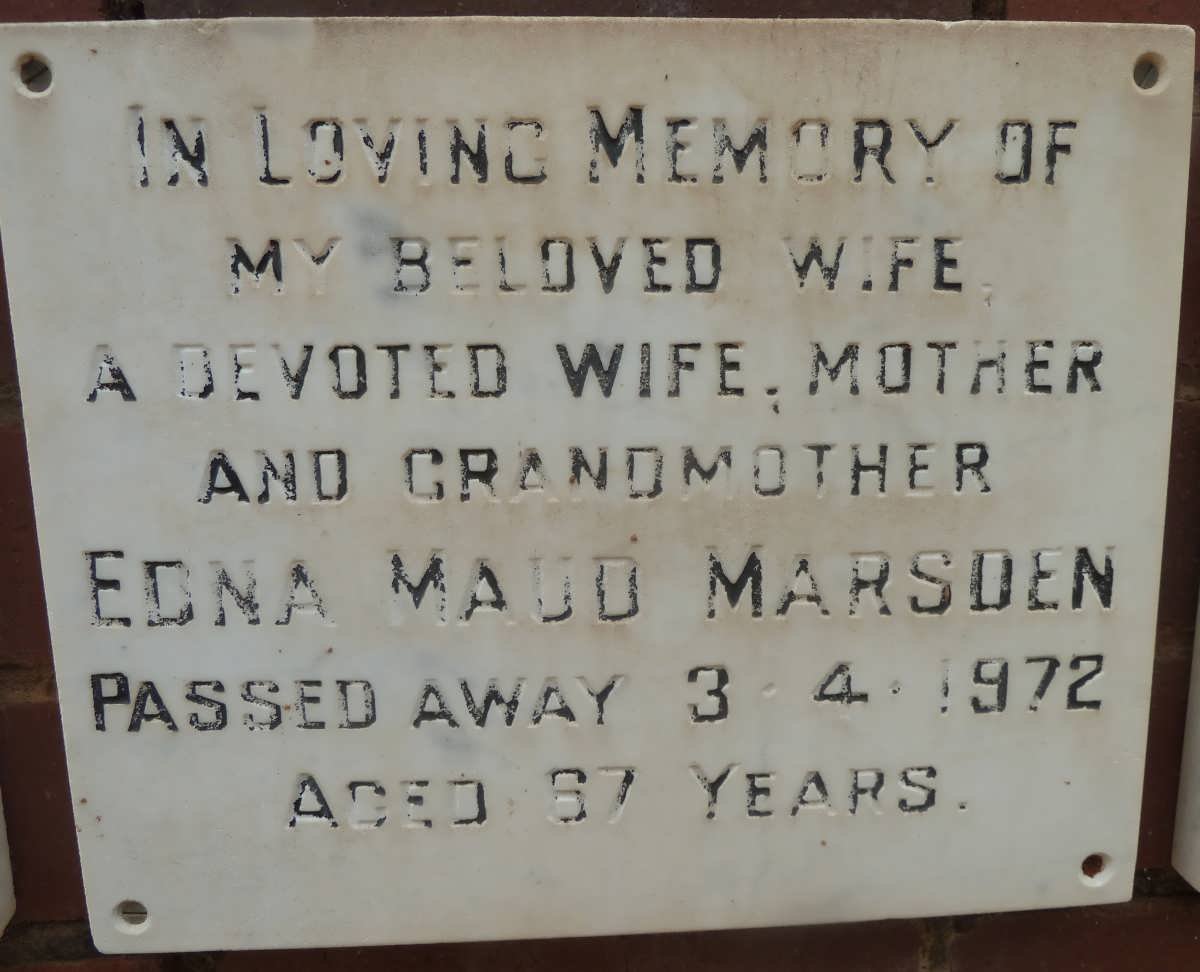 IN LOVING MEMORY OF
MY BELOVED WIFE,
A DEVOTED WIFE, MOTHER
AND GRANDMOTHER
EDNA MAUD MARSDEN
PASSED AWAY 3·4·1972
AGED 67 YEARS.